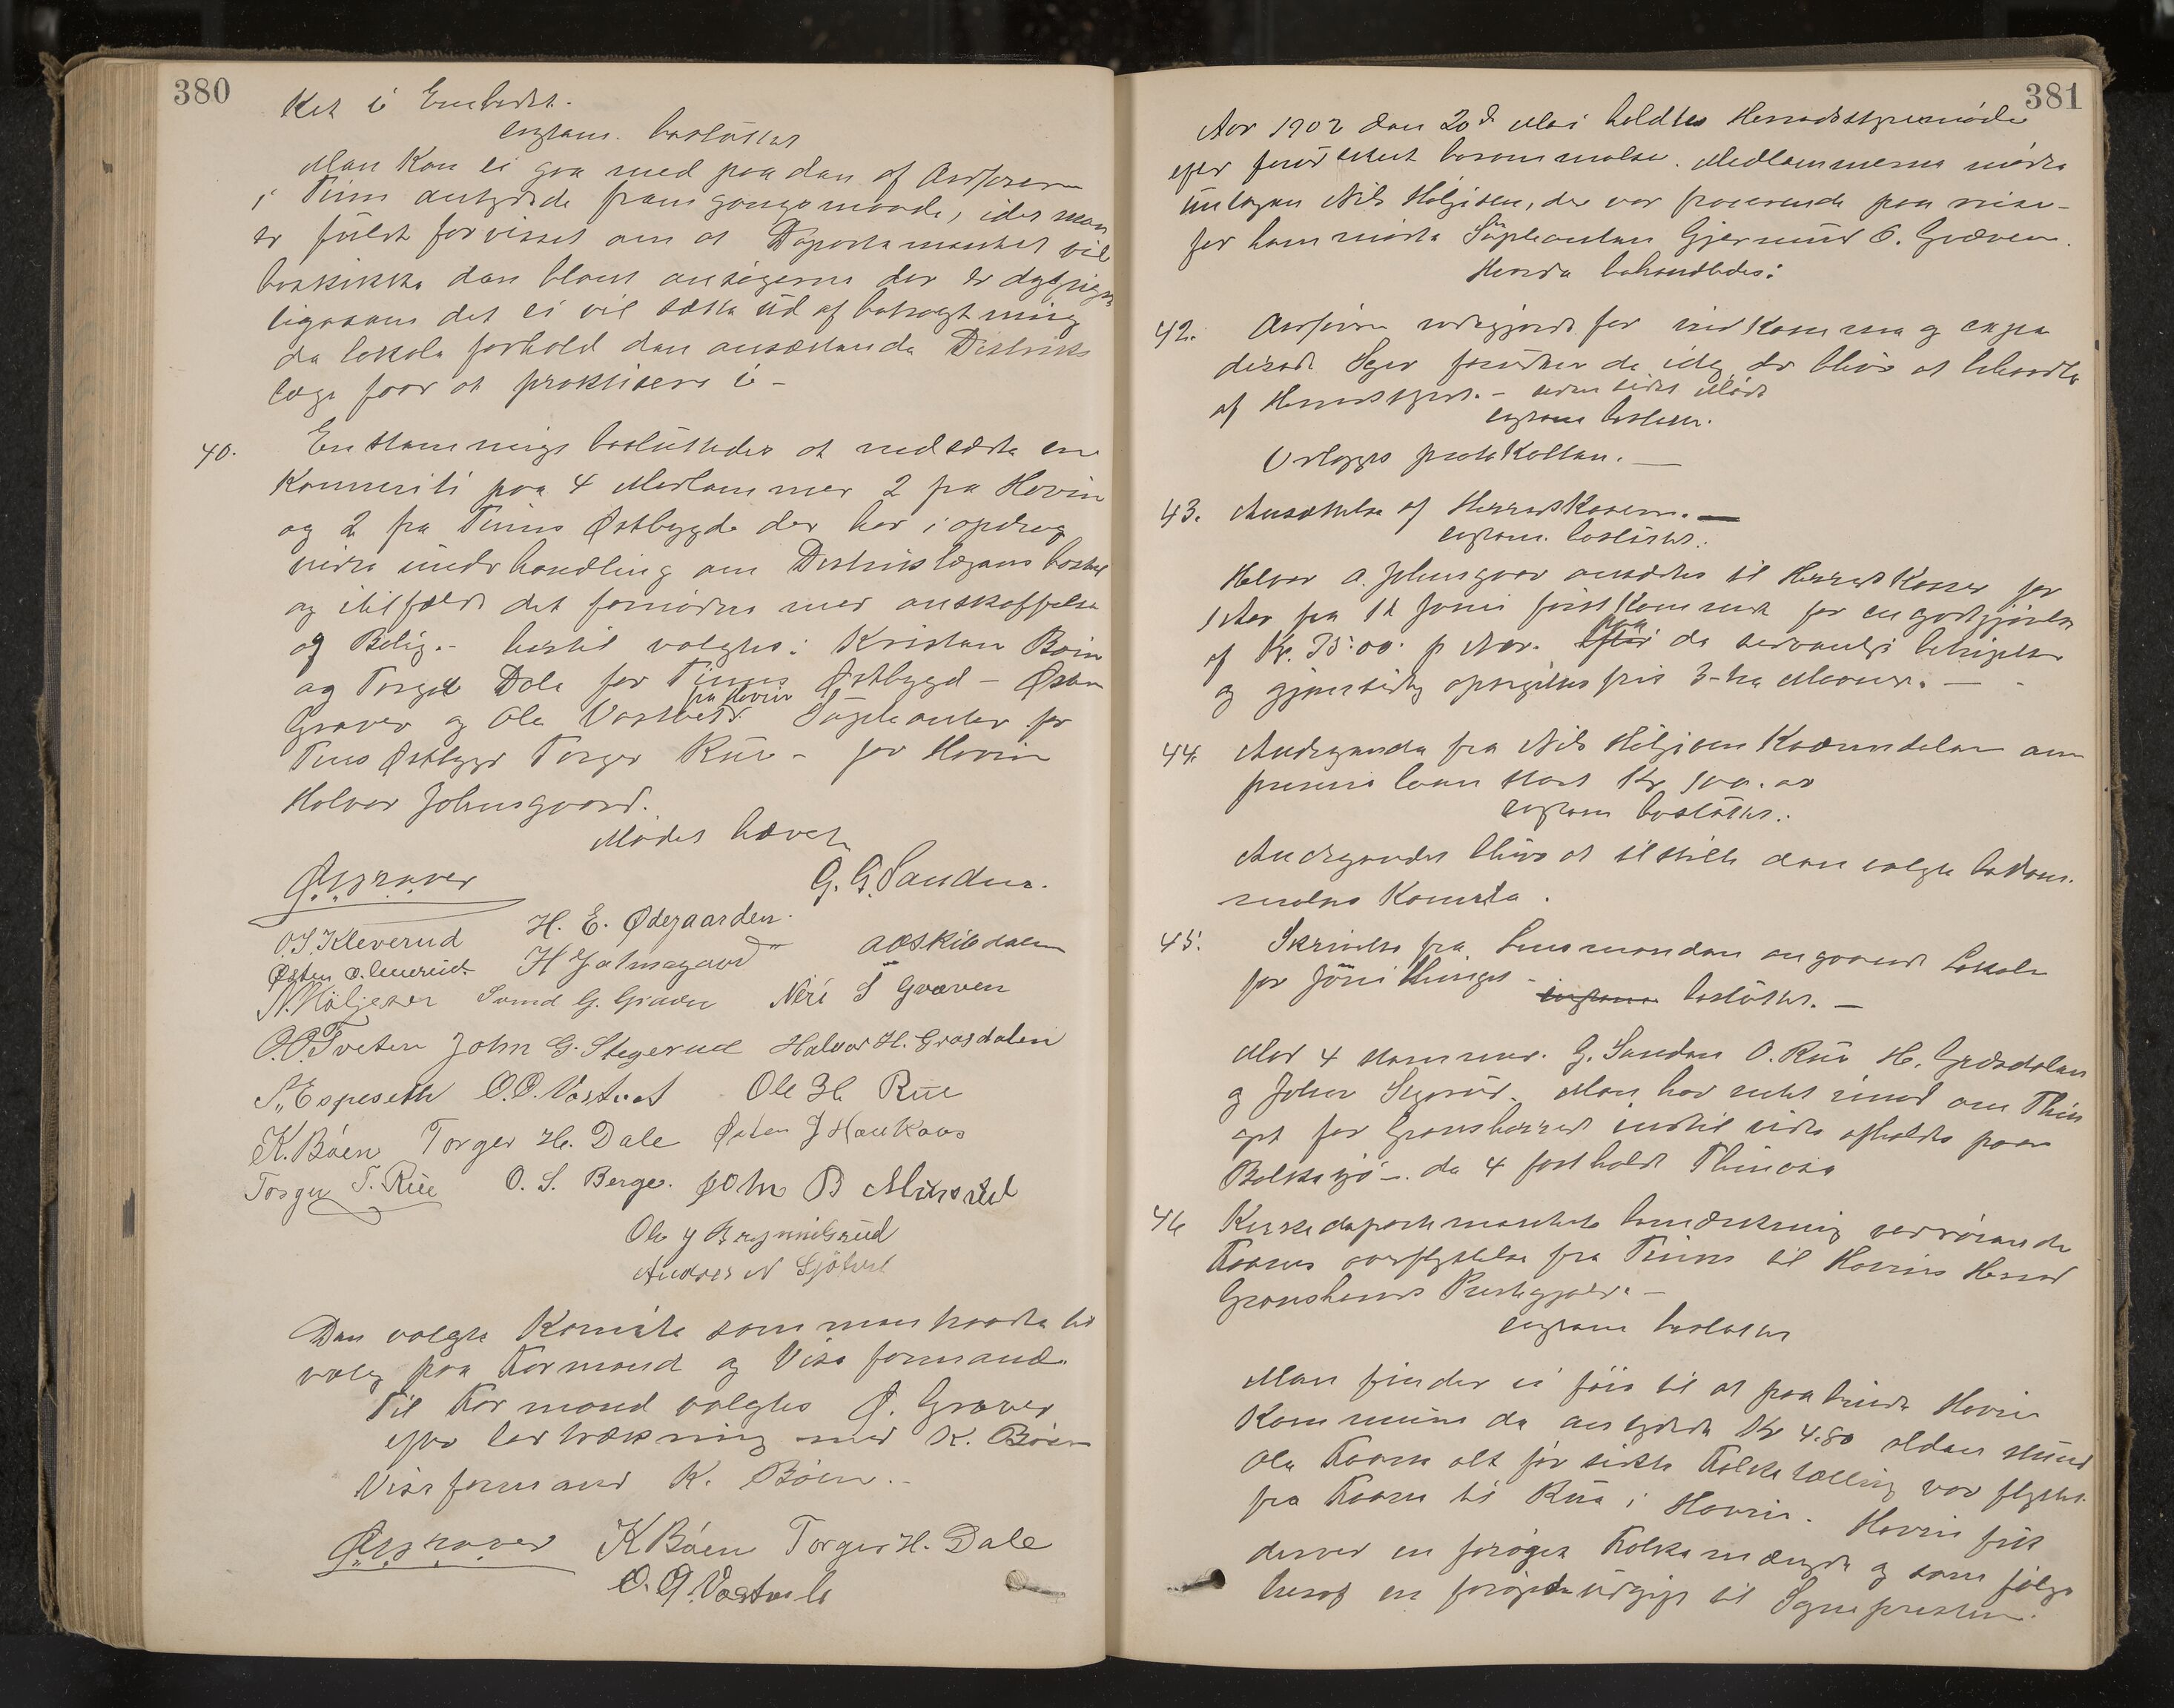 380
Ket i Embedet.
enstem. besluttet
Man kan ei gaa med paa den af Ordføreren
i Tinn antydede fremgangsmaade, idet man
er fuldt forvisset om at Departementet vil
beskikke den blant ansøgerne der er dygtigst
ligesom det ei vil sætte ud af betragtning
da lokale forhold den ansættende Distrikts
læge faar at praktisere i -
40. Enstemmigt besluttedes at nedsætte en
Kommiti paa 4 Medlemmer 2 fra Hovin
og 2 fra Tinns Østbygde der har i opdrag
videre underhandling om Distriktslægens bosted
og itilfælde det fornødne med anskaffelse
af Bolig. - hertil valgtes: Kristen Bøen
og Torger Dale for Tinns Østbygd - Østen
Graver og Ole Vastveit fra Hovin Supleanter for
Tins Østbygd Torger Rue - for Hovin
Halvor Johnsgaard.
Mødet hævet
Ø. Graver G. G. Sanden.
O. S. Kleverud H. E. Ødegaarden.
H Jolmsgaard A O Skibdalen
N. Høljesen Svend G. Graven Neri S Græven
O. O. Tveten John G. Stegerud Halvor H. Grosdalen
S. Espeseth O. O. Vastveit Ole H. Rue
K. Bøen Torger H. Dale Østen J Haukaas
Torger T. Rue O. S. Berge. John B Mursrud
Ole J Brynnildsrud
Andres N Sjøtveit
Den valgte Komite sammentraadte til
valg paa Formand og Vise formand.
Til Formand valgtes Ø. Graver
efter lodtrækning med K. Bøen
Viseformand K. Bøen. -
Ø. Graver K Bøen Torger H. Dale
O. O. Vastveit
381
Aar 1902 den 20de Mai holdtes Herredsstyremøde
efter forudskeet berammelse. Medlemmerne mødte
untagen Nils Høljesen, der var fraværende paa reise -
for ham mødte Supleanten Gjermund O. Græven.
Herda behandledes:
42. Ordføreren redegjorde for ind komne og expe
derede Sager foruden de idag der blive at behandle
af Herredsstyret. - siden sidst Møde
enstem beslutt.
Vedlegges protokollen. -
43. Ansættelse af Herredskasserer. -
enstem. besluttet.
Halvor O. Johnsgaar ansættes til Herredskasser for
1 Aar fra 1st Juni førstkommende for en godtgjørelse
af Kr. 75.00. p Aar. efter paa de sedvanlige betingelser
og gjensidig opsigelses frist 3-tre Maaner. -
44. Andragende fra Nils Høljesen Kvernodalen om
premie laan stort Kr 500.00
enstem besluttet.
Andragendet blive at tilstille den valgte bedøm-
melses Komite.
45. Skrivelse fra Lensmanden angaaende Lokale
for Juni thinget -
enstem besluttet. -
Med 4 stemmer. G. Sanden O. Rue H. Grosdalen
og John Stegerud. Man har intet imod om Thin
get for Gransherred indtil videre afholdes paa
Bolkesjø -. da 4 fastholdt Thinoset
46 Kirkedepartementets bemærkning vedrørende
Kaasas overflyttelse fra Tinns til Hovins Herred
Gransherreds Prestegjæld. -
enstem besluttet
Man finder ei føie til at paa binde Hovin
Kommune de antydede Kr 4.80 aldenstund
Ole Kaasa alt før sidste Folketælling var flyttet
fra Kaasa til Rua i Hovin. Hovin fik
derved en forøget Folkemængde og som følge
heraf en forøget udgift til Sognepresten.